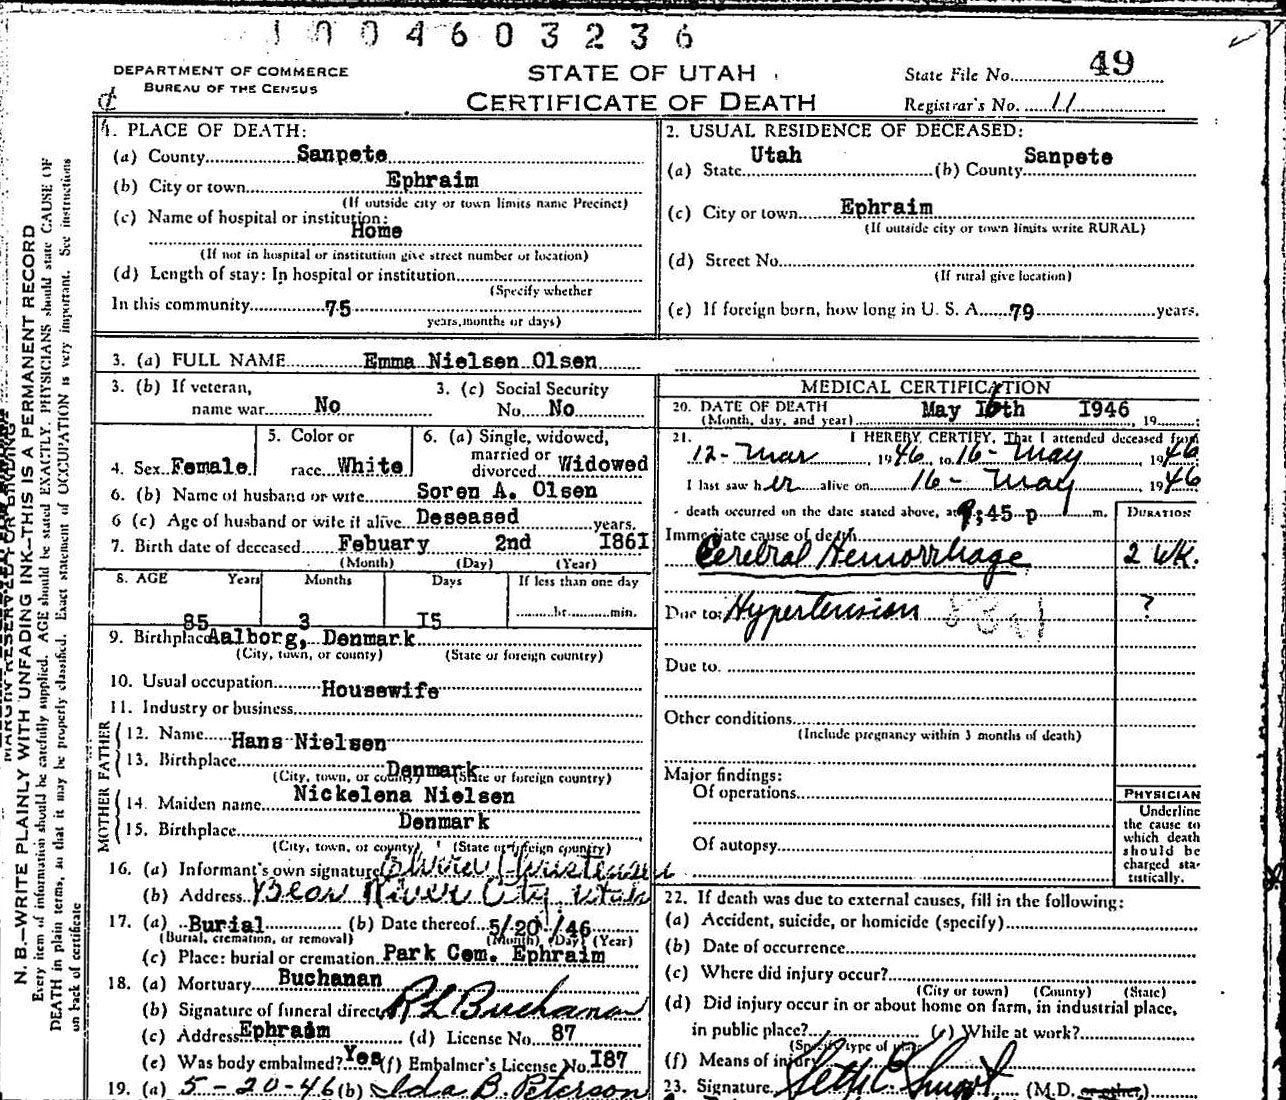 1004603236
DEPARTMENT OF COMMERCE
BUREAU OF THE CENSUS
STATE OF UTAH
CERTIFICATE OF DEATH
State File No. 49
Registrar's No. 11
1. PLACE OF DEATH:
(a) County Sanpete
(b) City or town Ephraim
(If outside city or town limits name Precinct)
(c) Name of hospital or institution:
Home
(If not in hospital or institution give street number or location)
(d) Length of stay: In hospital or institution
(Specify whether
In this community 75
years, months or days)
2. USUAL RESIDENCE OF DECEASED:
(a) State Utah (b) County Sanpete
(c) City or town Ephraim
(If outside city or town limits write RURAL)
(d) Street No.
(If rural give location)
(e) If foreign born, how long in U. S. A. 79 years.
3. (a) FULL NAME Emma Nielsen Olsen
3. (b) If veteran, name war No
3. (c) Social Security No. No
4. Sex Female
5. Color or race White
6. (a) Single, widowed, married or divorced Widowed
6. (b) Name of husband or wife Soren A. Olsen
6 (c) Age of husband or wife if alive Deseased years.
7. Birth date of deceased Febuary 2nd I86I
(Month) (Day) (Year)
8. AGE Years Months Days If less than one day
85 3 I5 hr. min.
9. Birthplace Aalborg, Denmark
(City, town, or county) (State or foreign country)
10. Usual occupation Housewife
11. Industry or business
FATHER
12. Name Hans Nielsen
13. Birthplace Denmark
(City, town, or county) (State or foreign country)
MOTHER
14. Maiden name Nickelena Nielsen
15. Birthplace Denmark
(City, town, or county) (State or foreign country)
16. (a) Informant's own signature Christensen
(b) Address Bear River City Utah
17. (a) Burial (b) Date thereof 5/20/46
(Burial, cremation, or removal) (Month) (Day) (Year)
(c) Place: burial or cremation Park Cem. Ephraim
18. (a) Mortuary Buchanan
(b) Signature of funeral director R L Buchanan
(c) Address Ephraim (d) License No. 87
(e) Was body embalmed? Yes (f) Embalmer's License No. I87
19. (a) 5-20-46 (b) Ida B. Peterson
MEDICAL CERTIFICATION
20. DATE OF DEATH May 16th I946
(Month, day, and year) , 19 :
21. I HEREBY CERTIFY, That I attended deceased from
12-Mar 1946, to 16-May, 1946
I last saw her alive on 16-May, 1946
death occurred on the date stated above, at 9;45 p m.
DURATION
Immediate cause of death
Cerebral Hemorrhage 2 WK.
Due to: Hypertension ?
Due to.
Other conditions
(Include pregnancy within 3 months of death)
Major findings:
Of operations
Of autopsy
PHYSICIAN
Underline
the cause to
which death
should be
charged sta-
tistically.
22. If death was due to external causes, fill in the following:
(a) Accident, suicide, or homicide (specify)
(b) Date of occurrence
(c) Where did injury occur?
(City or town) (County) (State)
(d) Did injury occur in or about home on farm, in industrial place,
in public place? (e) While at work?
(Specify type of place)
(f) Means of injury
23. Signature (M.D. or other)
N. B.—WRITE PLAINLY WITH UNFADING INK—THIS IS A PERMANENT RECORD
Every item of information should be carefully supplied. AGE should be stated EXACTLY. PHYSICIANS should state CAUSE OF
DEATH in plain terms, so that it may be properly classified. Exact statement of OCCUPATION is very important. See instructions
on back of certificate
MARGIN RESERVED FOR BINDING